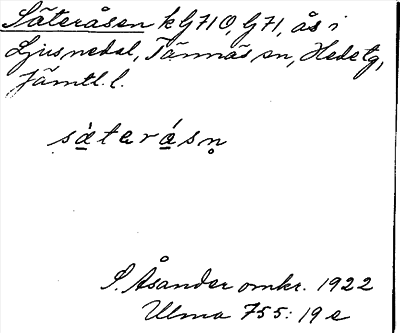 Säteråsen kG710, G71, ås i
Ljusnedal, Tännäs sn, Hede tg,
Jämtl. l.
sàterá̱sn̥
S. Åsander omkr. 1922
Ulma 755: 19 e